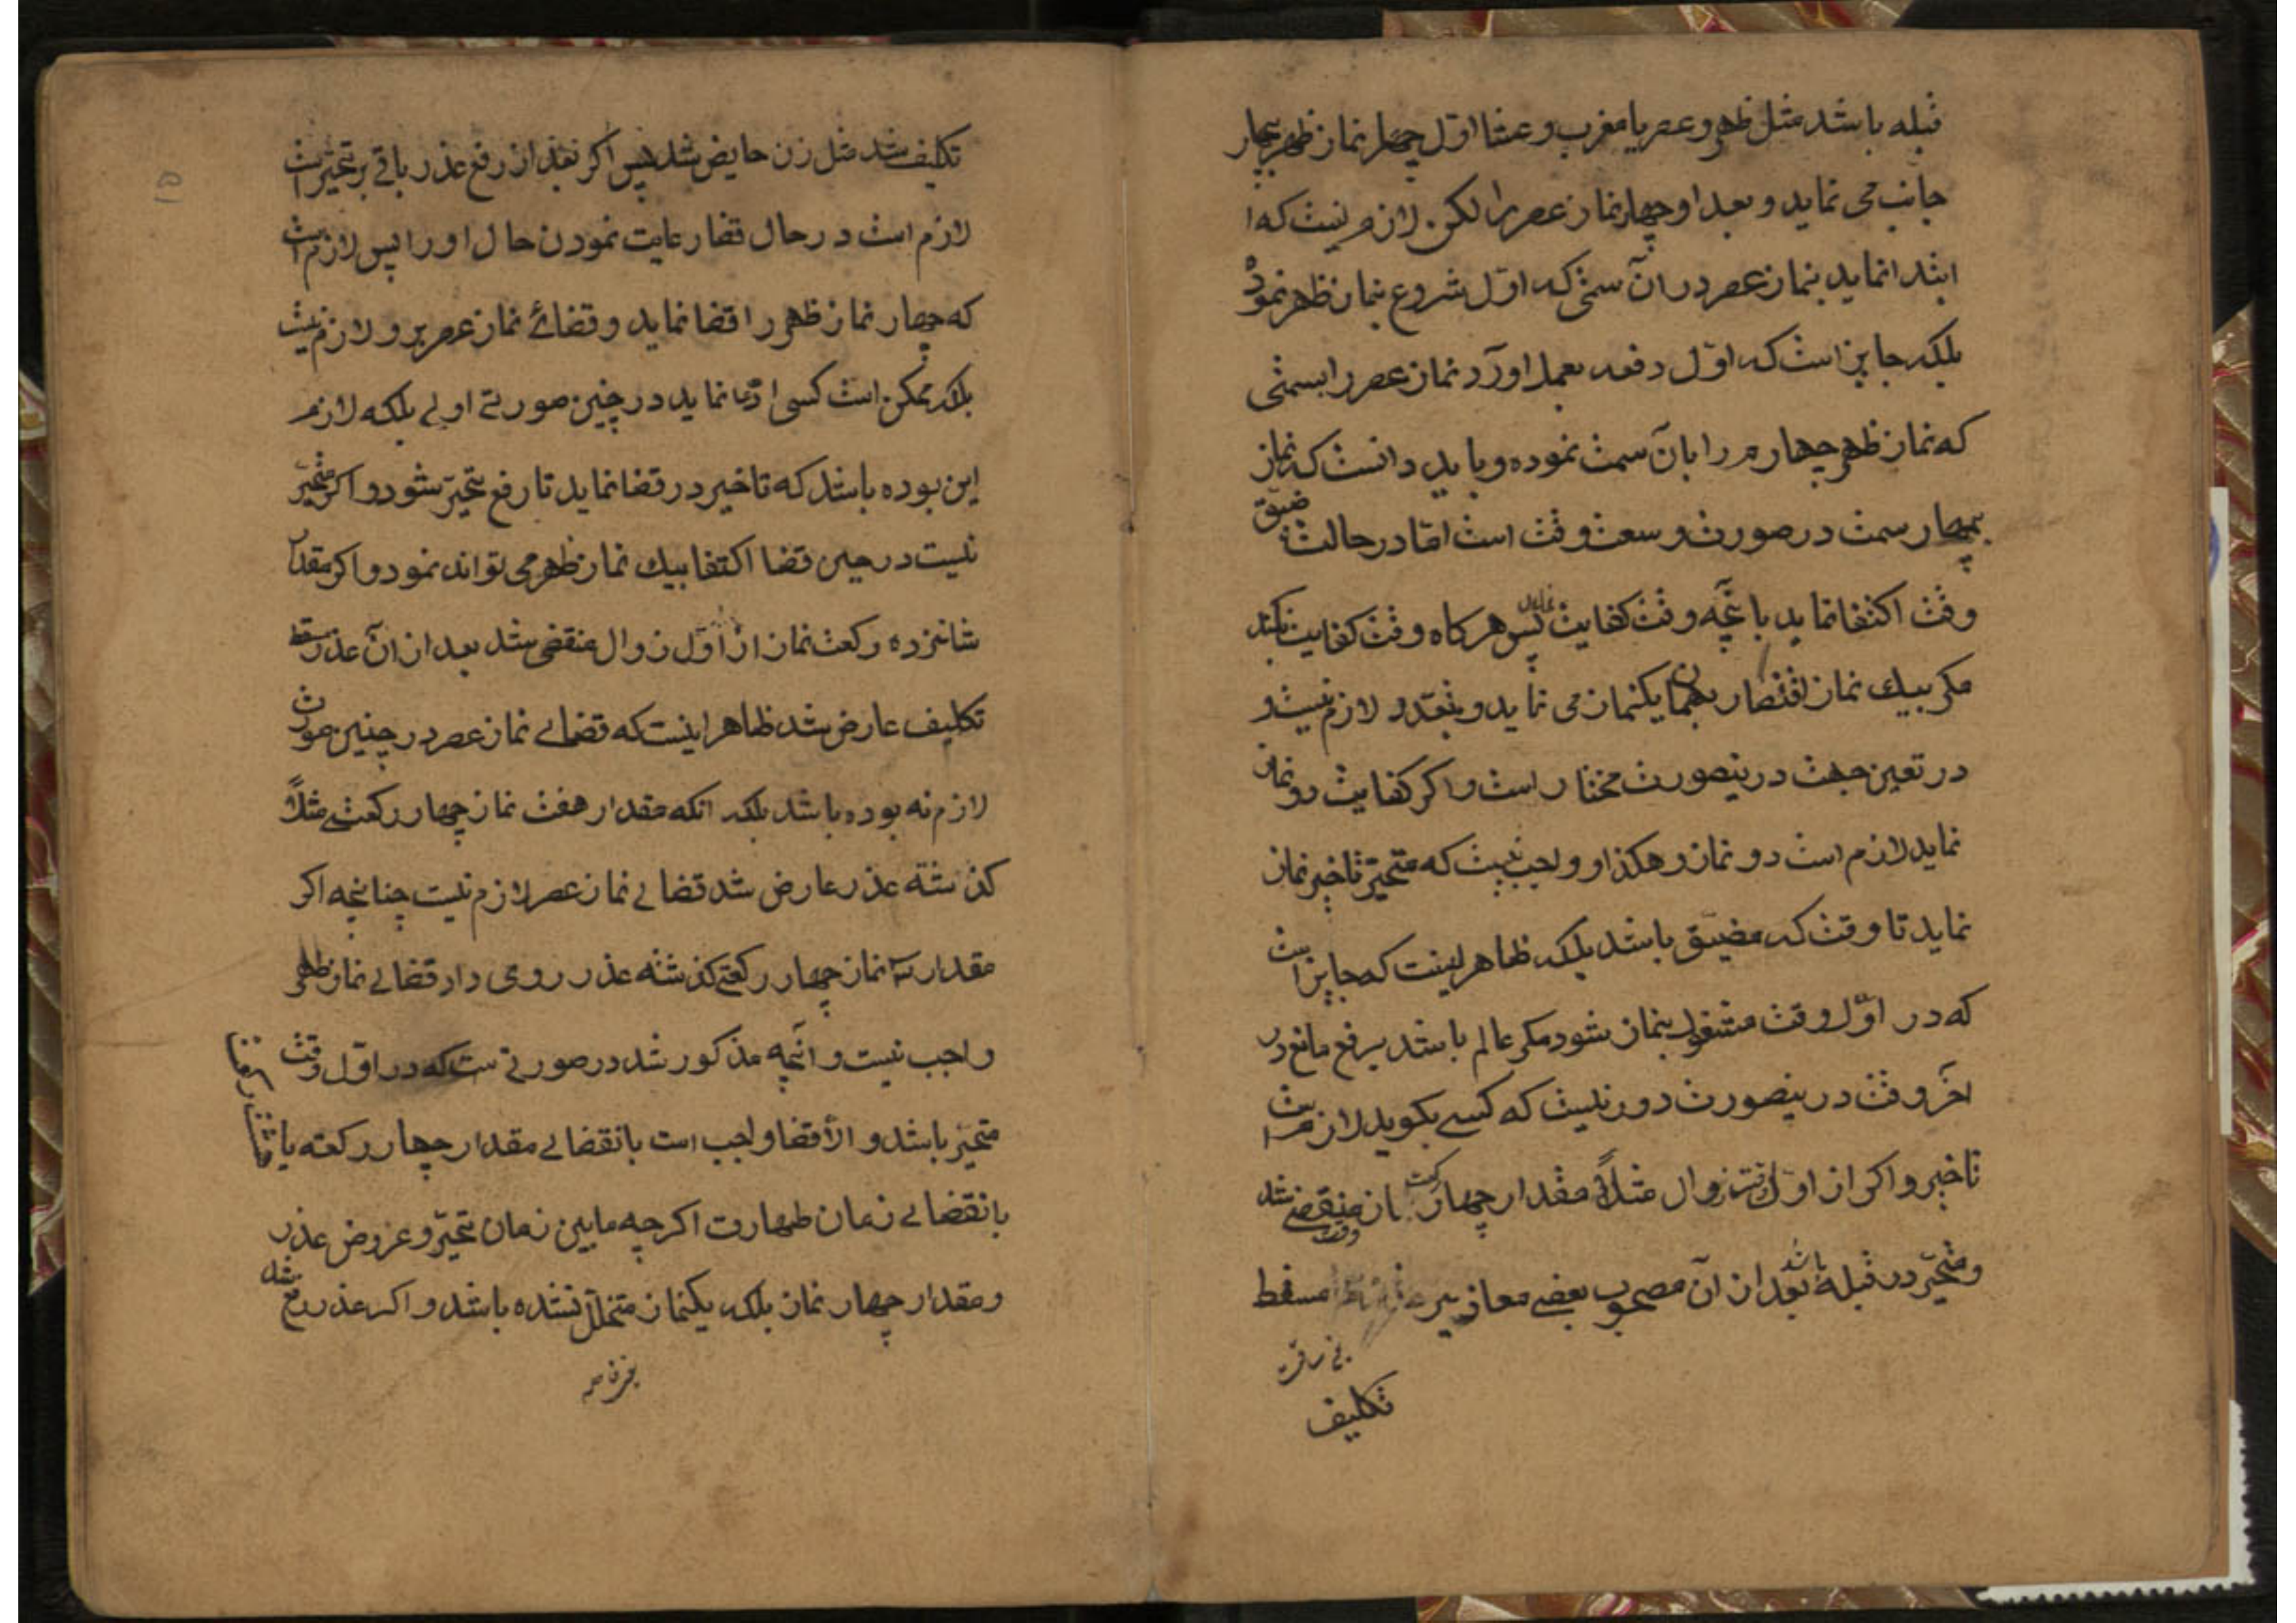 قبله باشد مثل ظهر و عصر یا مغرب و عشا اوّل چهار نماز ظهر بچهار
جانب می نماید و بعد او چهار نماز عصر را لکن لازم نیست که ا
ابتدا نماید بنماز عصر در آن سمتی که اوّل شروع بنماز ظهر نموده
بلکه جایز است که اوّل دفعه بعمل اورد نماز عصر را بسمتی
که نماز ظهر چهارم را بان سمت نموده و باید دانست که نماز
بچهار سمت در صورت وسعت وقت است امّا در حالت ضیق
وقت اکتفا نماید بانچه وقت کفایت نماید پس هر کاه وقت کفایت نکند
مکر بیک نماز اقتصار بهمان یکنماز می نماید و بتعدد لازم نیست و
در تعین جهت درینصورت مختار است و اکر کفایت دو نماز
نماید لازم است دو نماز و هکذا و واجب نیست که متحیّر تاخیر نماز
نماید تا وقت که مضیّق باشد بلکه ظاهر اینست که جایز است
که در اوّل وقت مشغول بنماز شود مکر عالم باشد برفع مانع در
اخر وقت درینصورت دور نیست که کسے بکوید لازم است
تاخیر و اکر از اوّل وقت زوال مثلاً مقدار چهار رکعت نماز منقضے شد
و متحیّر در قبله باشد بعد از آن مصحوب بعضے معاذیر مسقط
تکلیف
تکلیف شد مثل زن حایض شد پس اکر بعد از رفع عذر باقے بر تحیّر است
لازم است در حال قضا رعایت نمودن حال او را پس لازم است
که چهار نماز ظهر را قضا نماید و قضائے نماز عصر برو لازم نیست
بلکه ممکن است کسی ادّعا نماید در چنین صورتے اولے بلکه لازم
این بوده باشد که تاخیر در قضا نماید تا رفع تحیّر شود و اکر متحیّر
نیست در حین قضا اکتفا بیك نماز ظهر می تواند نمود و اکر مقدار
شانزده رکعت نماز از اوّل زوال منقضی شد بعد از آن عذر مسقط
تکلیف عارض شد ظاهر اینست که قضاے نماز عصر در چنین صورت
لازم نه بوده باشد بلکه انکه مقدار هفت نماز چهار رکعتے مثلاً
کذشته عذر عارض شد قضاے نماز عصر لازم نیست چنانچه اکر
مقدار سه نماز چهار رکعتے کذشته عذر روی داد قضاے نماز ظهر
واجب نیست و انچه مذکور شد در صورتے ست که در اوّل وقت
متحیّر باشد و الّا قضا واجب است بانقضاے مقدار چهار رکعته یا
بانقضاے زمان طهارت اکرچه مابین زمان تحیّر و عروض عذر
و مقدار چهار نماز بلکه یکنماز متخلّل نشده باشد و اکر عذر رفع شد